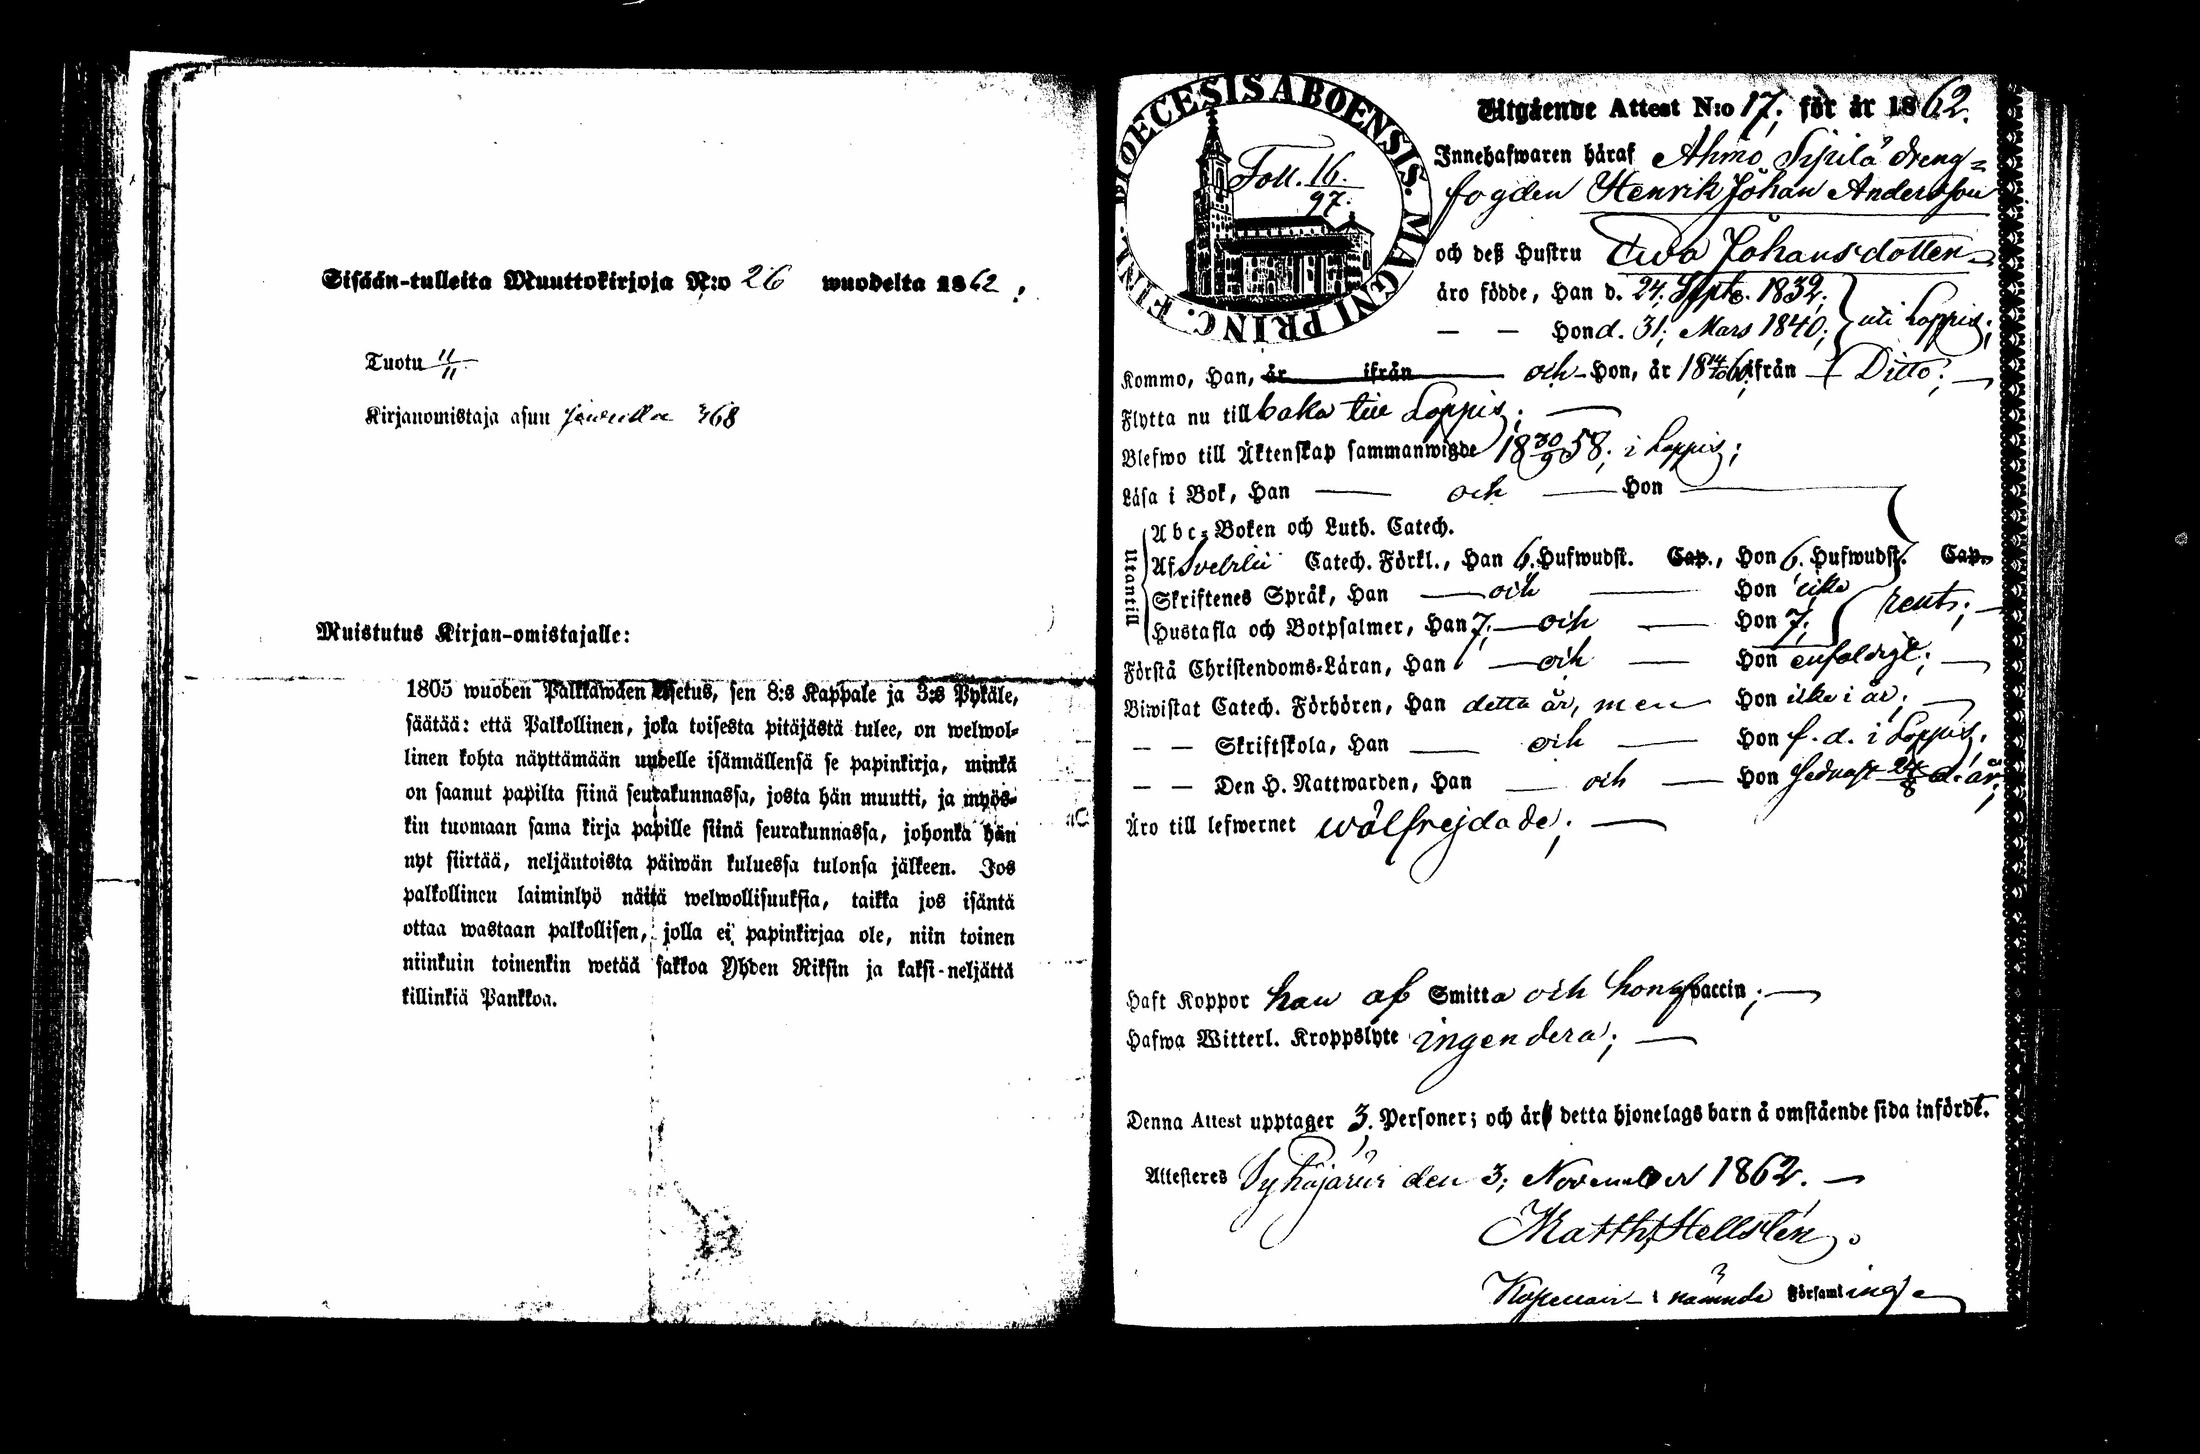 Sisään-tulleita Muuttokirjoja N:o 26 wuodelta 1862.
Tuotu 11/11
Kirjanomistaja asuu 368
Muistutus Kirjan-omistajalle:
1805 wuoden Palkkawäen Asetus, sen 8:s Kappale ja 3:s Pykäle,
säätää: että Palkollinen, joka toisesta pitäjästä tulee, on welwol-
linen kohta näyttämään uudelle isännällensä se papinkirja, minkä
on saanut papilta siinä seurakunnassa, josta hän muutti, ja myös-
kin tuomaan sama kirja papille siinä seurakunnassa, johonka hän
nyt siirtää, neljäntoista päiwän kuluessa tulonsa jälkeen. Jos
palkollinen laiminlyö näitä welwollisuuksia, taikka jos isäntä
ottaa wastaan palkollisen, jolla ei papinkirjaa ole, niin toinen
niinkuin toinenkin wetää sakkoa Yhden Riksin ja kaksi-neljättä
killinkiä Pankkoa.
DIOECESIS ABOENSIS. MAGNI PRINC. FINL.
Foll. 16.
97.
Utgående Attest N:o 17. för år 1862.
Innehafwaren häraf Ahmo Sipilä dreng-
fogden Henrik Johan Andersson
och deß Hustru Ewa Johansdotter
äro födde, Han d. 24. Septb. 1832;
— — Hon d. 31; Mars 1840; uti Loppis;
Kommo, Han, är ifrån och Hon, år 18 14/10 61 ifrån Ditto;
Flytta nu tillbaka till Loppis;
Blefwo till Äktenskap sammanwigde 18 30/9 58; i Loppis;
Läsa i Bok, Han — och — Hon
Utantill
Abc-Boken och Luth. Catech.
Af Svebilii Catech. Förkl., Han 6. Hufwudst. Cap., Hon 6. Hufwudst. Cap.
Skriftenes Språk, Han — och — Hon icke rent;
Hustafla och Botpsalmer, Han 7. — och — Hon 7;
Förstå Christendoms-Läran, Han — och — Hon enfaldigt;
Biwistat Catech. Förhören, Han detta år, men Hon icke i år;
— — Skriftskola, Han — och — Hon f. d. i Loppis;
— — Den H. Nattwarden, Han — och — Hon sednast 24/8 d. år;
Äro till lefwernet wälfrejdade;
Haft Koppor han af Smitta och hon af Vaccin;
Hafwa Witterl. Kroppslyte ingendera;
Denna Attest upptager 3. Personer; och är detta hjonelags barn å omstående sida infördt.
Attesteras Pyhäjärvi den 3; November 1862.
Matth. Hellstén
i nämnde Församling